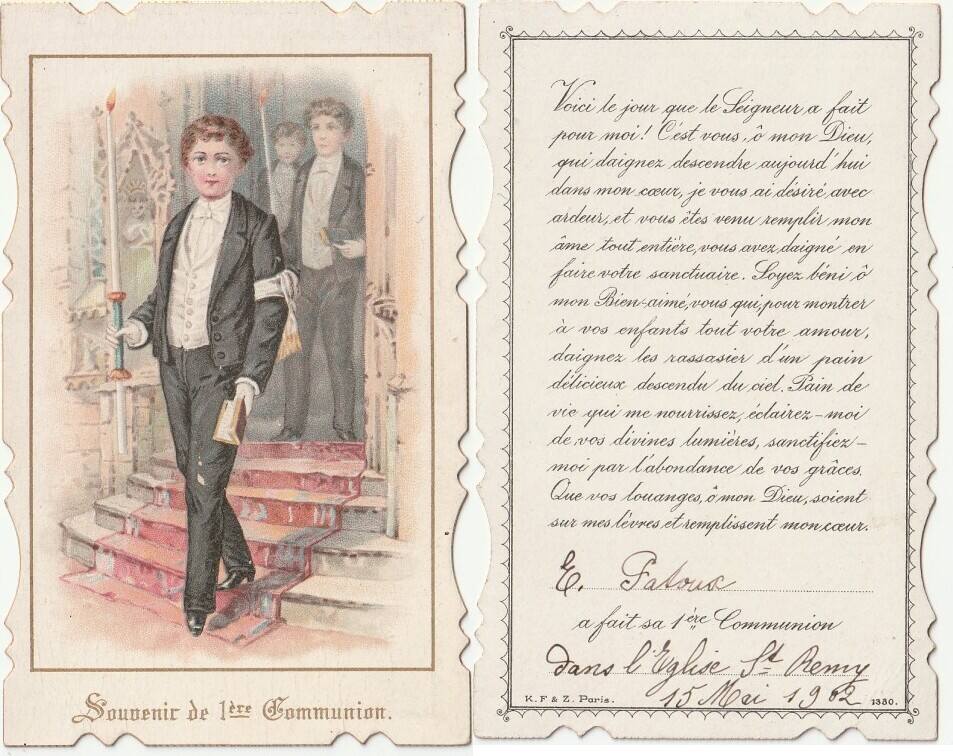 Souvenir de 1ère Communion.
Voici le jour que le Seigneur a fait
pour moi! C'est vous, ô mon Dieu,
qui daignez descendre aujourd'hui
dans mon cœur, je vous ai désiré avec
ardeur, et vous êtes venu remplir mon
âme tout entière, vous avez daigné en
faire votre sanctuaire. Soyez béni ô
mon Bien-aimé, vous qui, pour montrer
à vos enfants tout votre amour,
daignez les rassasier d'un pain
délicieux descendu du ciel. Pain de
vie qui me nourrissez, éclairez-moi
de vos divines lumières, sanctifiez-
moi par l'abondance de vos grâces.
Que vos louanges, ô mon Dieu, soient
sur mes lèvres et remplissent mon cœur.
E. Patoux
a fait sa 1ère Communion
dans l'Eglise St Remy
15 Mai 1902
K. F & Z. Paris. 1330.